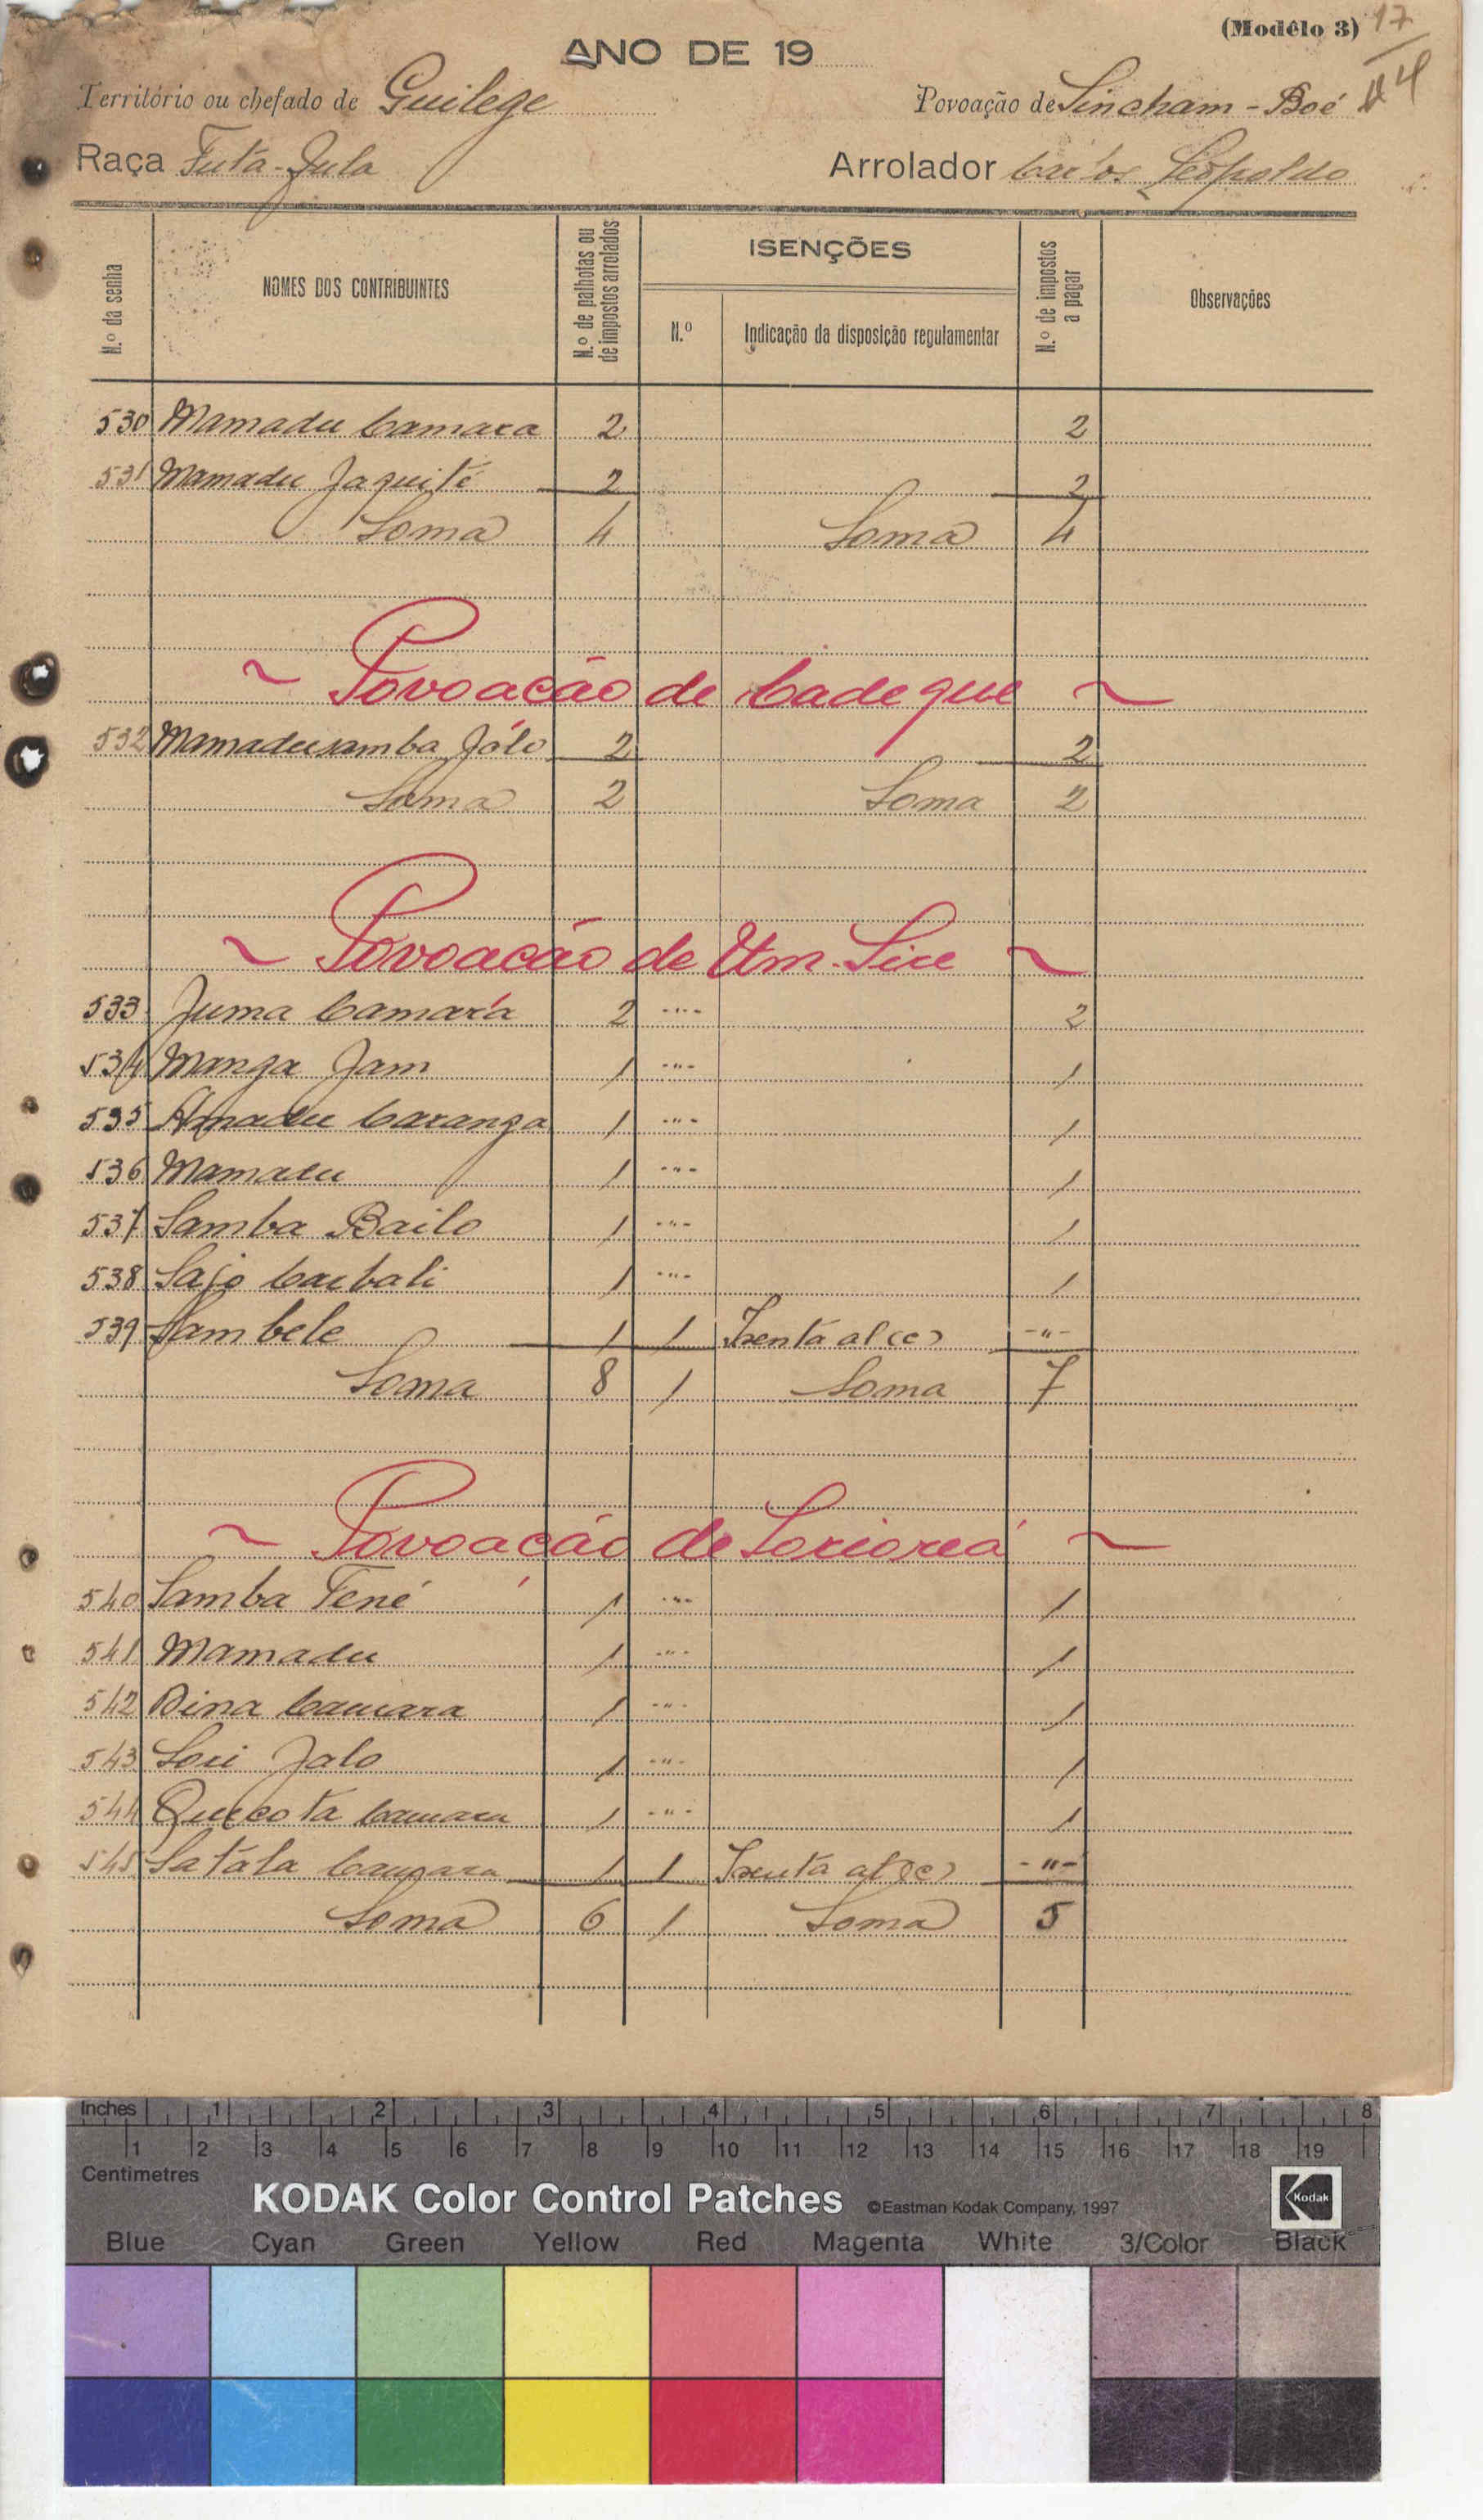 (Modêlo 3) 17
ANO DE 19
Território ou chefado de Guilege Povoação de Sincham-Boé
Raça Futa-Jula Arrolador Carlos Leopoldo
N.º da senha NOMES DOS CONTRIBUINTES N.º de palhotas ou de impostos arrolados ISENÇÕES N.º de impostos a pagar Observações
N.º Indicação da disposição regulamentar
530 Mamadu Camara 2 2
531 Mamadu Jaquité 2 2
Soma 4 Soma 4
~ Povoacão de Cadeque ~
532 Mamadu samba Jólo 2 2
Soma 2 Soma 2
~ Povoacão de Um. Sire ~
533 Juma Camará 2 -"- 2
534 Manga Jam 1 -"- 1
535 Amadu Caranga 1 -"- 1
536 Mamadu 1 -"- 1
537 Samba Bailo 1 -"- 1
538 Sajo 1 -"- 1
539 Sambele 1 1 Isenta al(c) -"-
Soma 8 1 Soma 7
~ Povoacão de ~
540 Samba Tené 1 -"- 1
541 Mamadu 1 -"- 1
542 Dina Camara 1 -"- 1
543 Sori Jalo 1 -"- 1
544 Quecota Camara 1 -"- 1
545 Satála Camara 1 1 Isenta al(c) -"-
Soma 6 1 Soma 5
Inches 1 2 3 4 5 6 7 8
1 2 3 4 5 6 7 8 9 10 11 12 13 14 15 16 17 18 19
Centimetres
KODAK Color Control Patches ©Eastman Kodak Company, 1997 Kodak
Blue Cyan Green Yellow Red Magenta White 3/Color Black